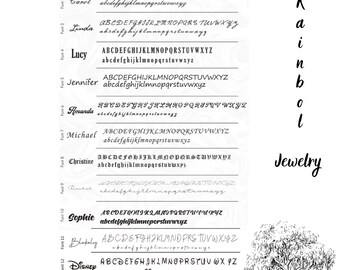 Carol
Font 3
Linda
ABCDEFGHIJKLMNOPQRSTUVWXYZ
abcdefghijklmnopqrstuvwxyz
Font 4
Lucy
ABCDEFGHIJKLMNOPQRSTUVWXYZ
abcdefghijklmnopqrstuvwxyz
Font 5
Jennifer
ABCDEFGHIJKLMNOPQRSTUVWXYZ
abcdefghijklmnopqrstuvwxyz
Font 6
Amanda
ABCDEFGHIJKLMNOPQRSTUVWXYZ
abcdefghijklmnopqrstuvwxyz
Font 7
Michael
ABCDEFGHIJKLMNOPQRSTUVWXYZ
abcdefghijklmnopqrstuvwxyz
Font 8
Christine
ABCDEFGHIJKLMNOPQRSTUVWXYZ
abcdefghijklmnopqrstuvwxyz
Font 9
ABCDEFGHIJKLMNOPQRSTUVWXYZ
abcdefghijklmnopqrstuvwxyz
Font 10
Sophie
ABCDEFGHIJKLMNOPQRSTUVWXYZ
abcdefghijklmnopqrstuvwxyz
Font 11
Blakeley
ABCDEFGHIJKLMNOPQRSTUVWXYZ
abcdefghijklmnopqrstuvwxyz
Font 12
Disney
ABCDEFGHIJKLMNOPQRSTUVWXYZ
R
a
i
n
b
o
l
Jewelry